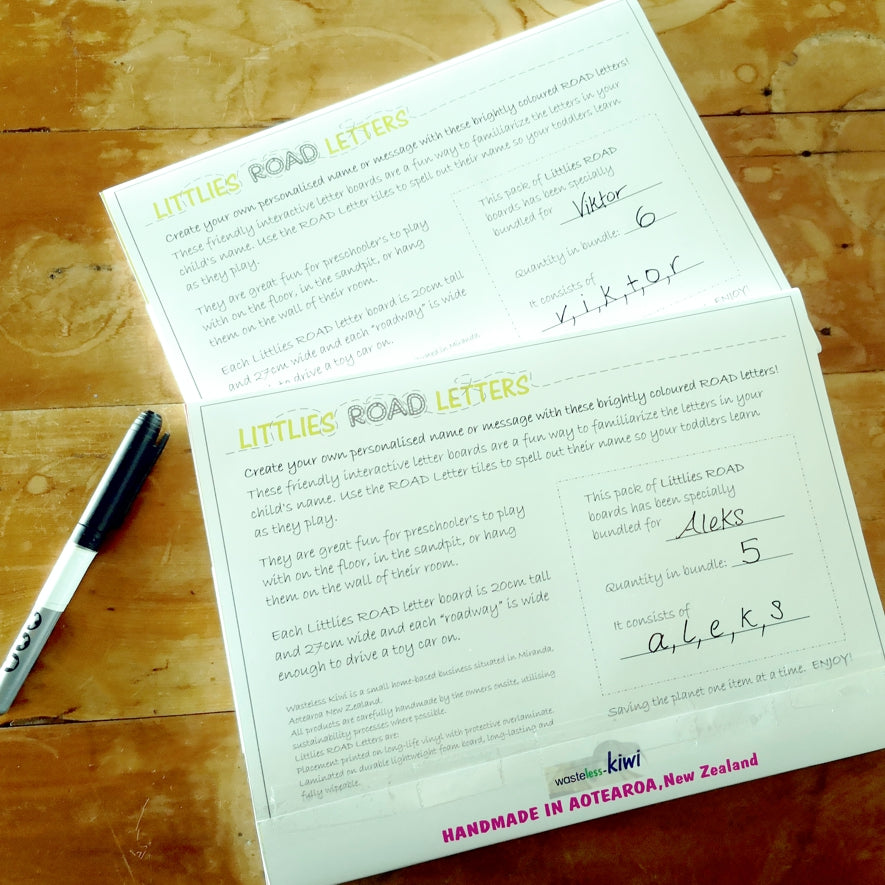 LITTLIES ROAD LETTERS
Create your own personalised name or message with these brightly coloured ROAD letters!
These friendly interactive letter boards are a fun way to familiarize the letters in your
child's name. Use the ROAD Letter tiles to spell out their name so your toddlers learn
as they play.
They are great fun for preschooler's to play
with on the floor, in the sandpit, or hang
them on the wall of their room.
Each Littlies ROAD letter board is 20cm tall
and 27cm wide and each "roadway" is wide
to drive a toy car on.
This pack of Littlies ROAD
boards has been specially
bundled for Viktor
Quantity in bundle: 6
It consists of
v, i, k, t, o, r
ENJOY!
in Miranda,
LITTLIES ROAD LETTERS
Create your own personalised name or message with these brightly coloured ROAD letters!
These friendly interactive letter boards are a fun way to familiarize the letters in your
child's name. Use the ROAD Letter tiles to spell out their name so your toddlers learn
as they play.
They are great fun for preschooler's to play
with on the floor, in the sandpit, or hang
them on the wall of their room.
Each Littlies ROAD letter board is 20cm tall
and 27cm wide and each "roadway" is wide
enough to drive a toy car on.
Wasteless Kiwi is a small home-based business situated in Miranda,
Aotearoa New Zealand.
All products are carefully handmade by the owners onsite, utilising
sustainability processes where possible.
Littlies ROAD Letters are:
Placement printed on long-life vinyl with protective overlaminate.
Laminated on durable lightweight foam board, long-lasting and
fully wipeable.
This pack of Littlies ROAD
boards has been specially
bundled for Aleks
Quantity in bundle: 5
It consists of
a, l, e, k, s
Saving the planet one item at a time. ENJOY!
wasteless-kiwi
HANDMADE IN AOTEAROA, New Zealand